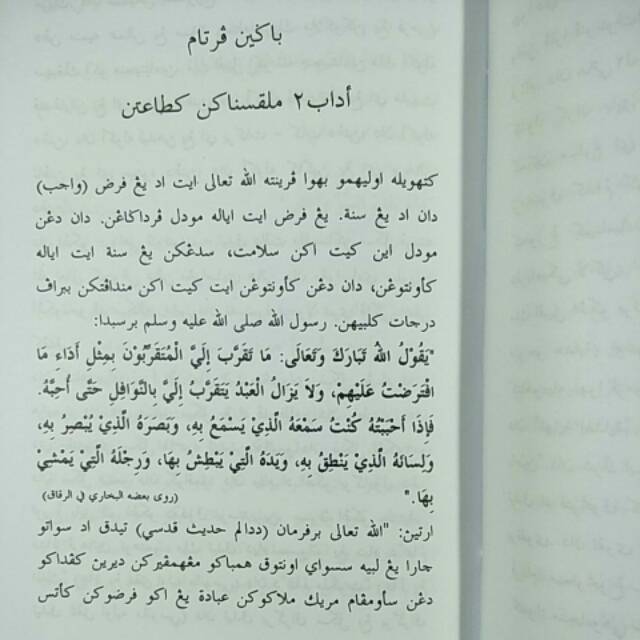 باکين ڤرتام
أداب٢ ملقسناکن کطاعتن
کتهويله اوليهمو بهوا ڤرينته الله تعالى ايت اد يڠ فرض (واجب)
دان اد يڠ سنة. يڠ فرض ايت اياله مودل ڤرداکاڠن. دان دڠن
مودل اين کيت اکن سلامت، سدڠکن يڠ سنة ايت اياله
کأونتوڠن، دان دڠن کأونتوڠن ايت کيت اکن منداڤتکن ببراڤ
درجات کلبيهن. رسول الله صلى الله عليه وسلم برسبدا:
"يَقُوْلُ اللهُ تَبَارَكَ وَتَعَالَى: مَا تَقَرَّبَ إِلَيَّ الْمُتَقَرِّبُوْنَ بِمِثْلِ أَدَاءِ مَا
افْتَرَضْتُ عَلَيْهِمْ، وَلاَ يَزَالُ الْعَبْدُ يَتَقَرَّبُ إِلَيَّ بِالنَّوَافِلِ حَتَّى أُحِبَّهُ.
فَإِذَا أَحْبَبْتُهُ كُنْتُ سَمْعَهُ الَّذِيْ يَسْمَعُ بِهِ، وَبَصَرَهُ الَّذِيْ يُبْصِرُ بِهِ،
وَلِسَانَهُ الَّذِيْ يَنْطِقُ بِهِ، وَيَدَهُ الَّتِيْ يَبْطِشُ بِهَا، وَرِجْلَهُ الَّتِيْ يَمْشِيْ
بِهَا." (روى بعضه البخاري في الرقاق)
ارتين: "الله تعالى برفرمان (ددالم حديث قدسي) تيدق اد سواتو
جارا يڠ لبيه سسواي اونتوق همباکو مڠهمڤيرکن ديرين کڤداکو
دڠن سأومڤام مريك ملاکوکن عبادة يڠ اکو فرضوکن کأتس